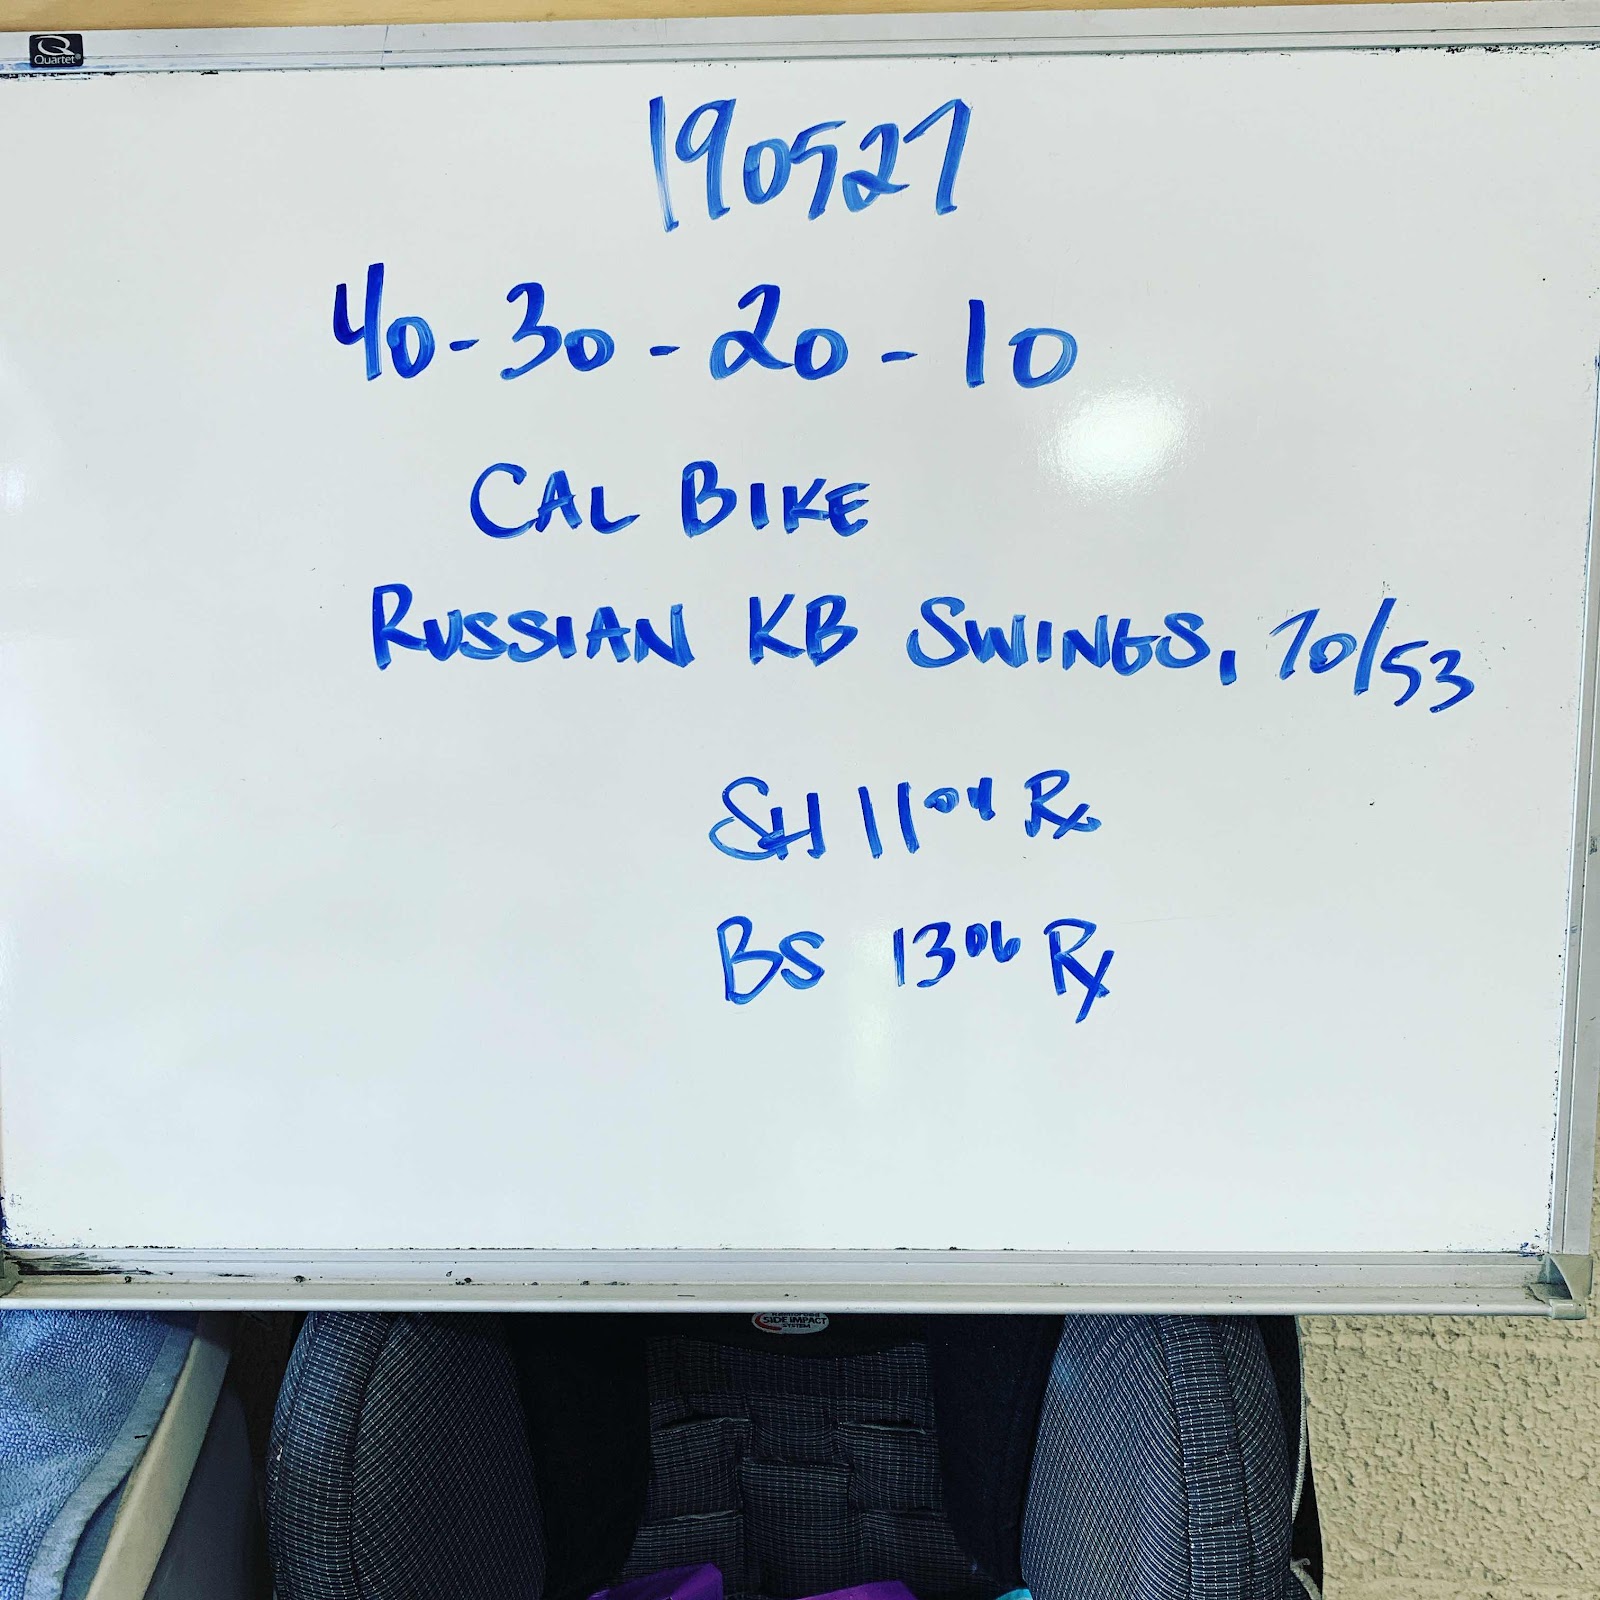 Quartet
190527
40-30-20-10
CAL BIKE
RUSSIAN KB SWINGS, 70/53
SH 11 04 Rx
BS 13 06 Rx
SIDE IMPACT
SYSTEM